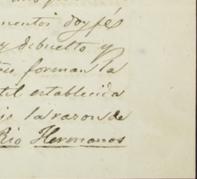 mentos doy fé
y disuelto y
forman la
til establecida
la razon de
Rio Hermanos